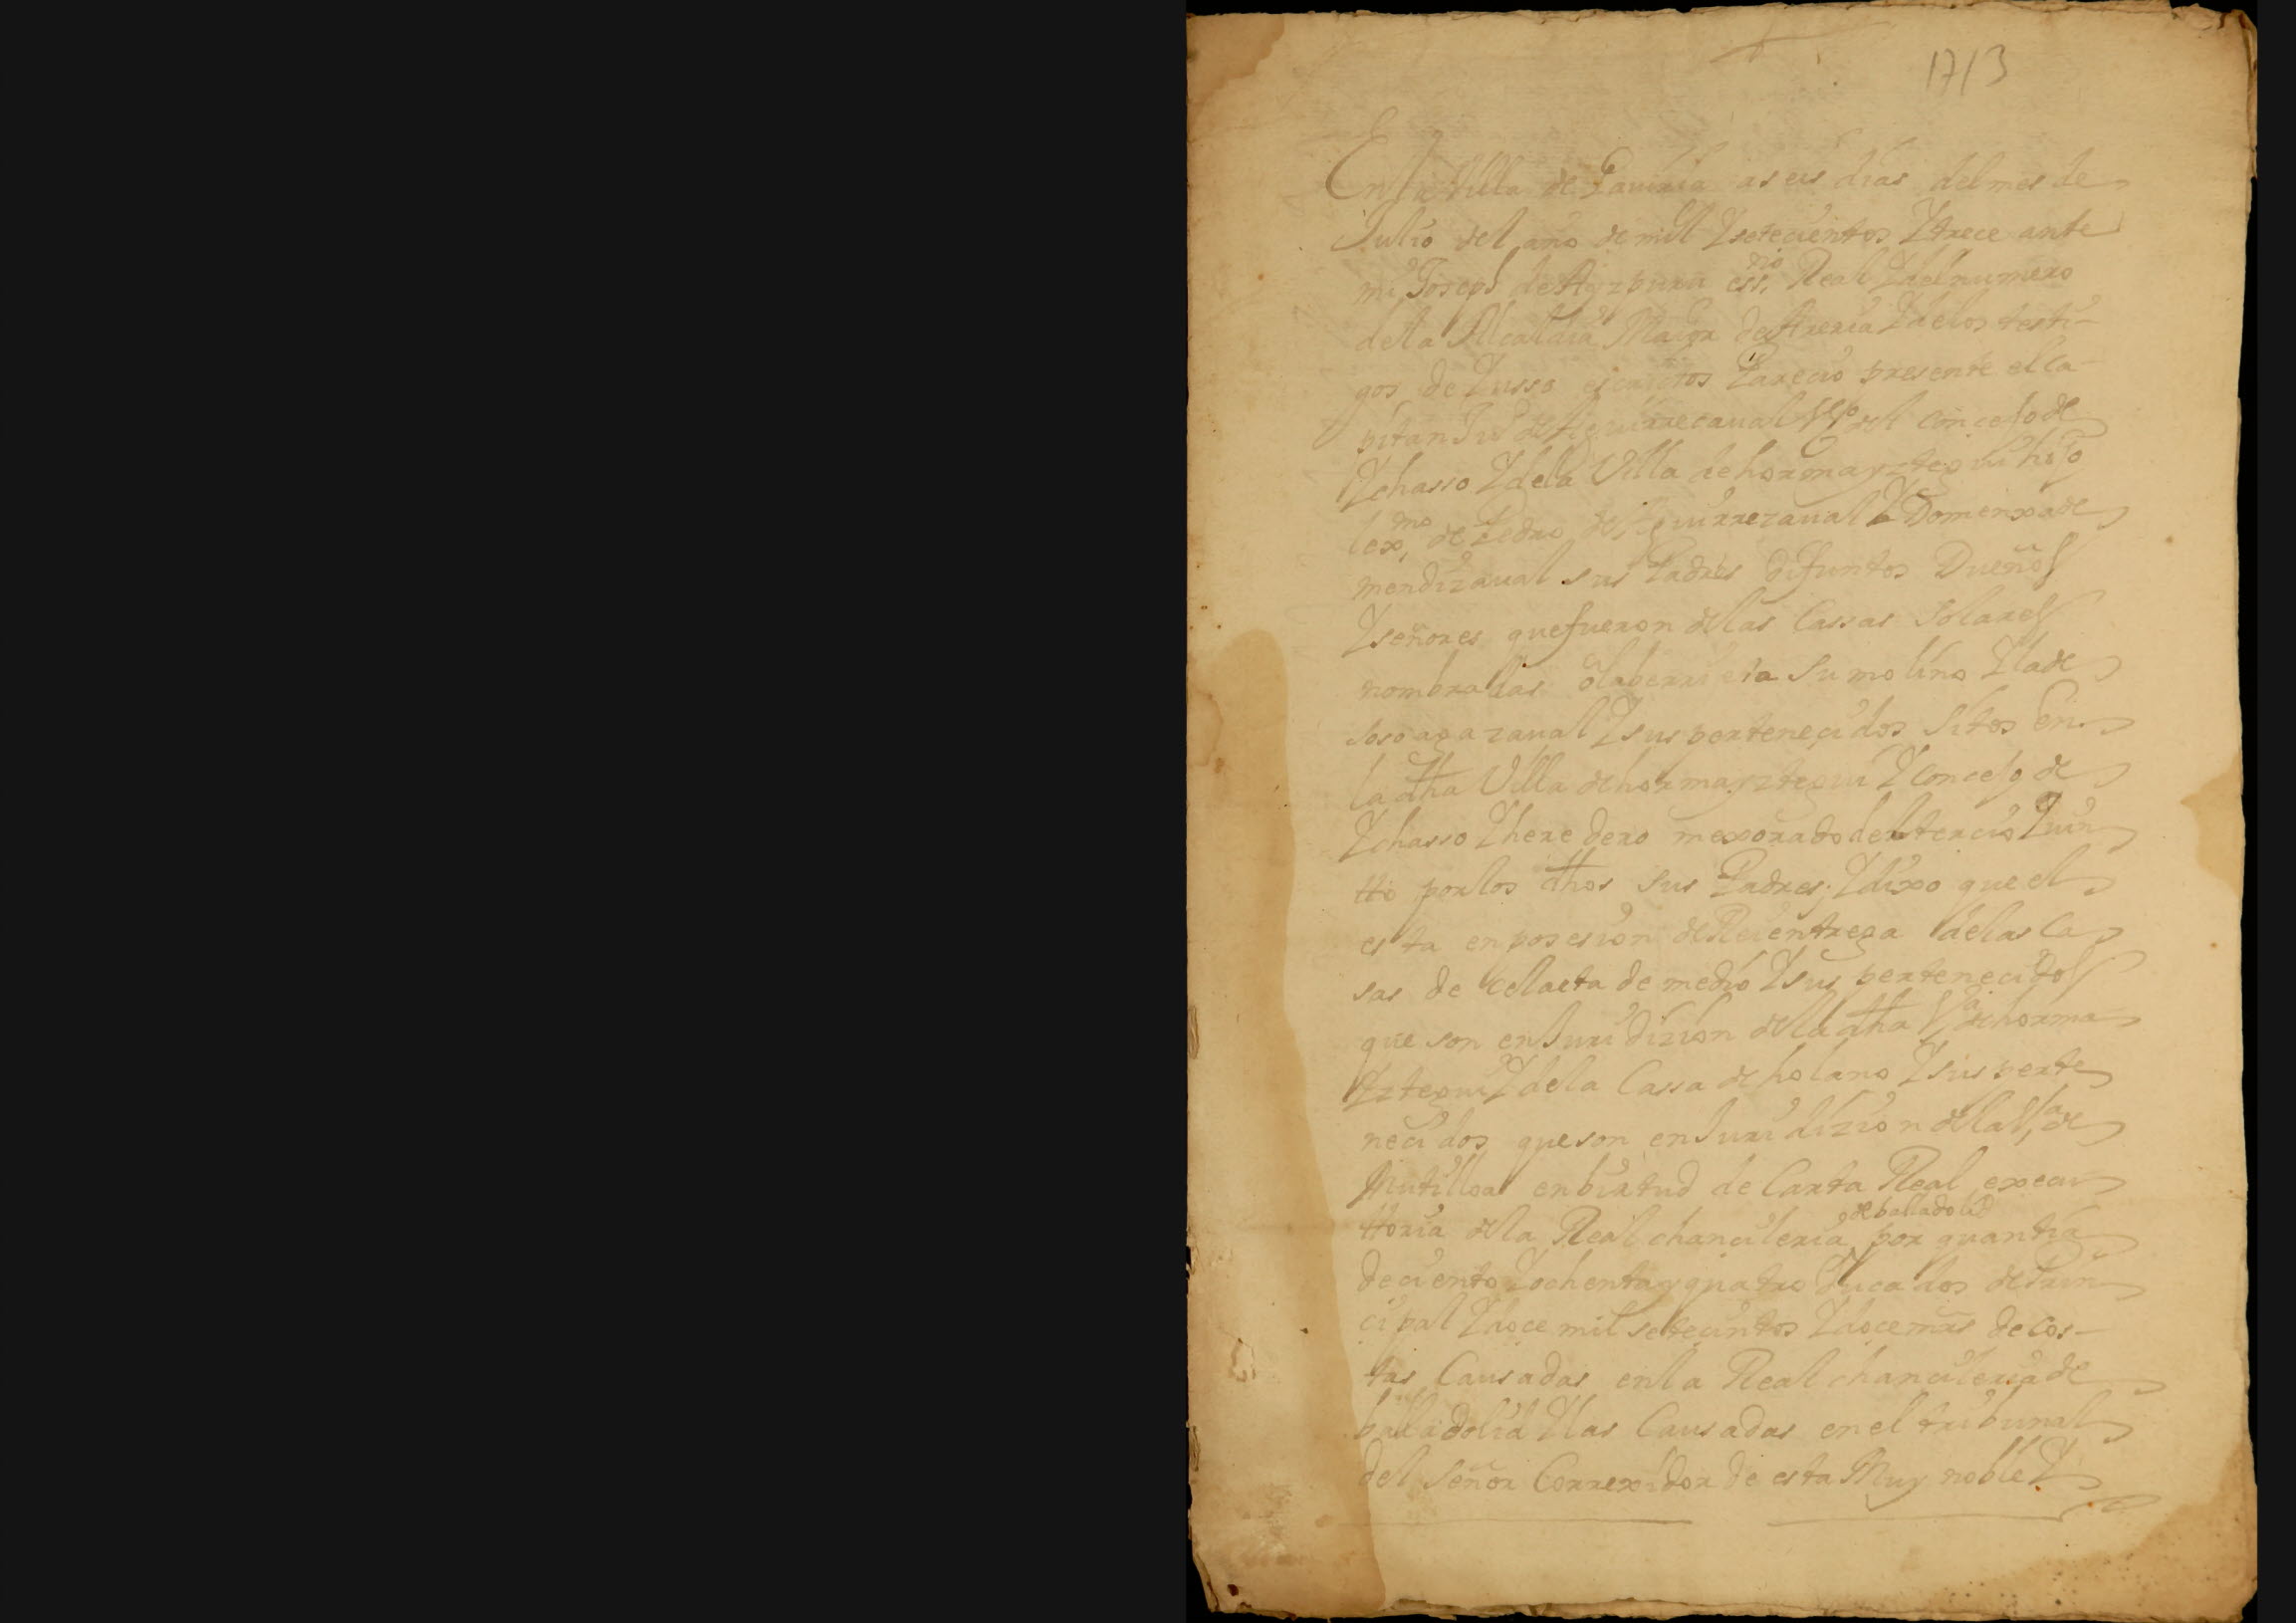 1713
En la Villa de Gaviria a seis dias del mes de
Julio del año de mil Y setecientos Y trece ante
mi Joseph de Ayzpuru ess.no Real Y del numero
de la Alcaldia Maior de Areria Y de los testi-
gos de Yusso escriptos Parecio presente el Ca-
pitan Ju.o de Aguirrezaual Vez.o del Concejo de
Ychasso Y de la Villa de hormayztegui hijo
lex.mo de Pedro de Aguirrezaual Y Domenxa de
mendizaual sus Padres difuntos Dueños
Y señores que fueron de las Cassas Solares
nombradas olaberrieta Su molino Y la de
Sosoagazaual Y sus pertenecidos Sitos En
la dha Villa de hormayztegui Y Concejo de
Ychasso Y heredero mexorado del tercio Y quin
tto por los dhos sus Padres, Y dixo que el
esta en posesion de Reentrega de las Ca
sas de celaeta de medio Y sus pertenecidos
que son en Juridizion de la dha V.a de horma
Yztegui Y de la Cassa de holano Y sus perte
necidos que son en Juridizion de la V.a de
Mutilloa en birtud de Carta Real execu
ttoria de la Real chancileria de balladolid por quantia
de ciento Y ochenta y quatro Ducados de Prin
cipal Y doce mil setecintos Y doce mrs de Cos-
tas Causadas en la Real chancileria de
balladolid Y las Causadas en el tribunal
del Señor Correxidor de esta Muy noble Y